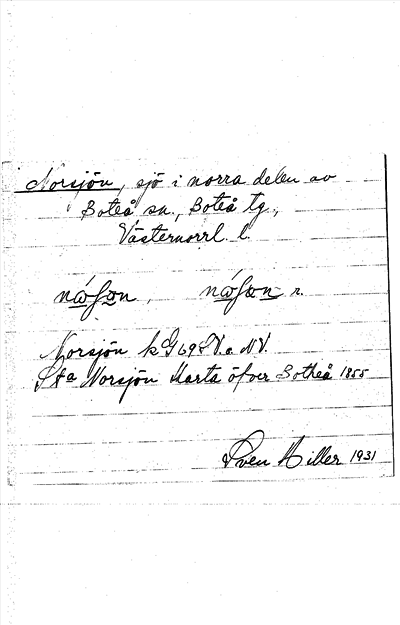 Norsjön, sjö i norra delen av
Boteå sn., Boteå tg.,
Västernorrl. l.
Norsjön k G 69 S V. o. N V.
S:ta Norsjön Karta öfver Botheå 1855
Sven Hiller 1931